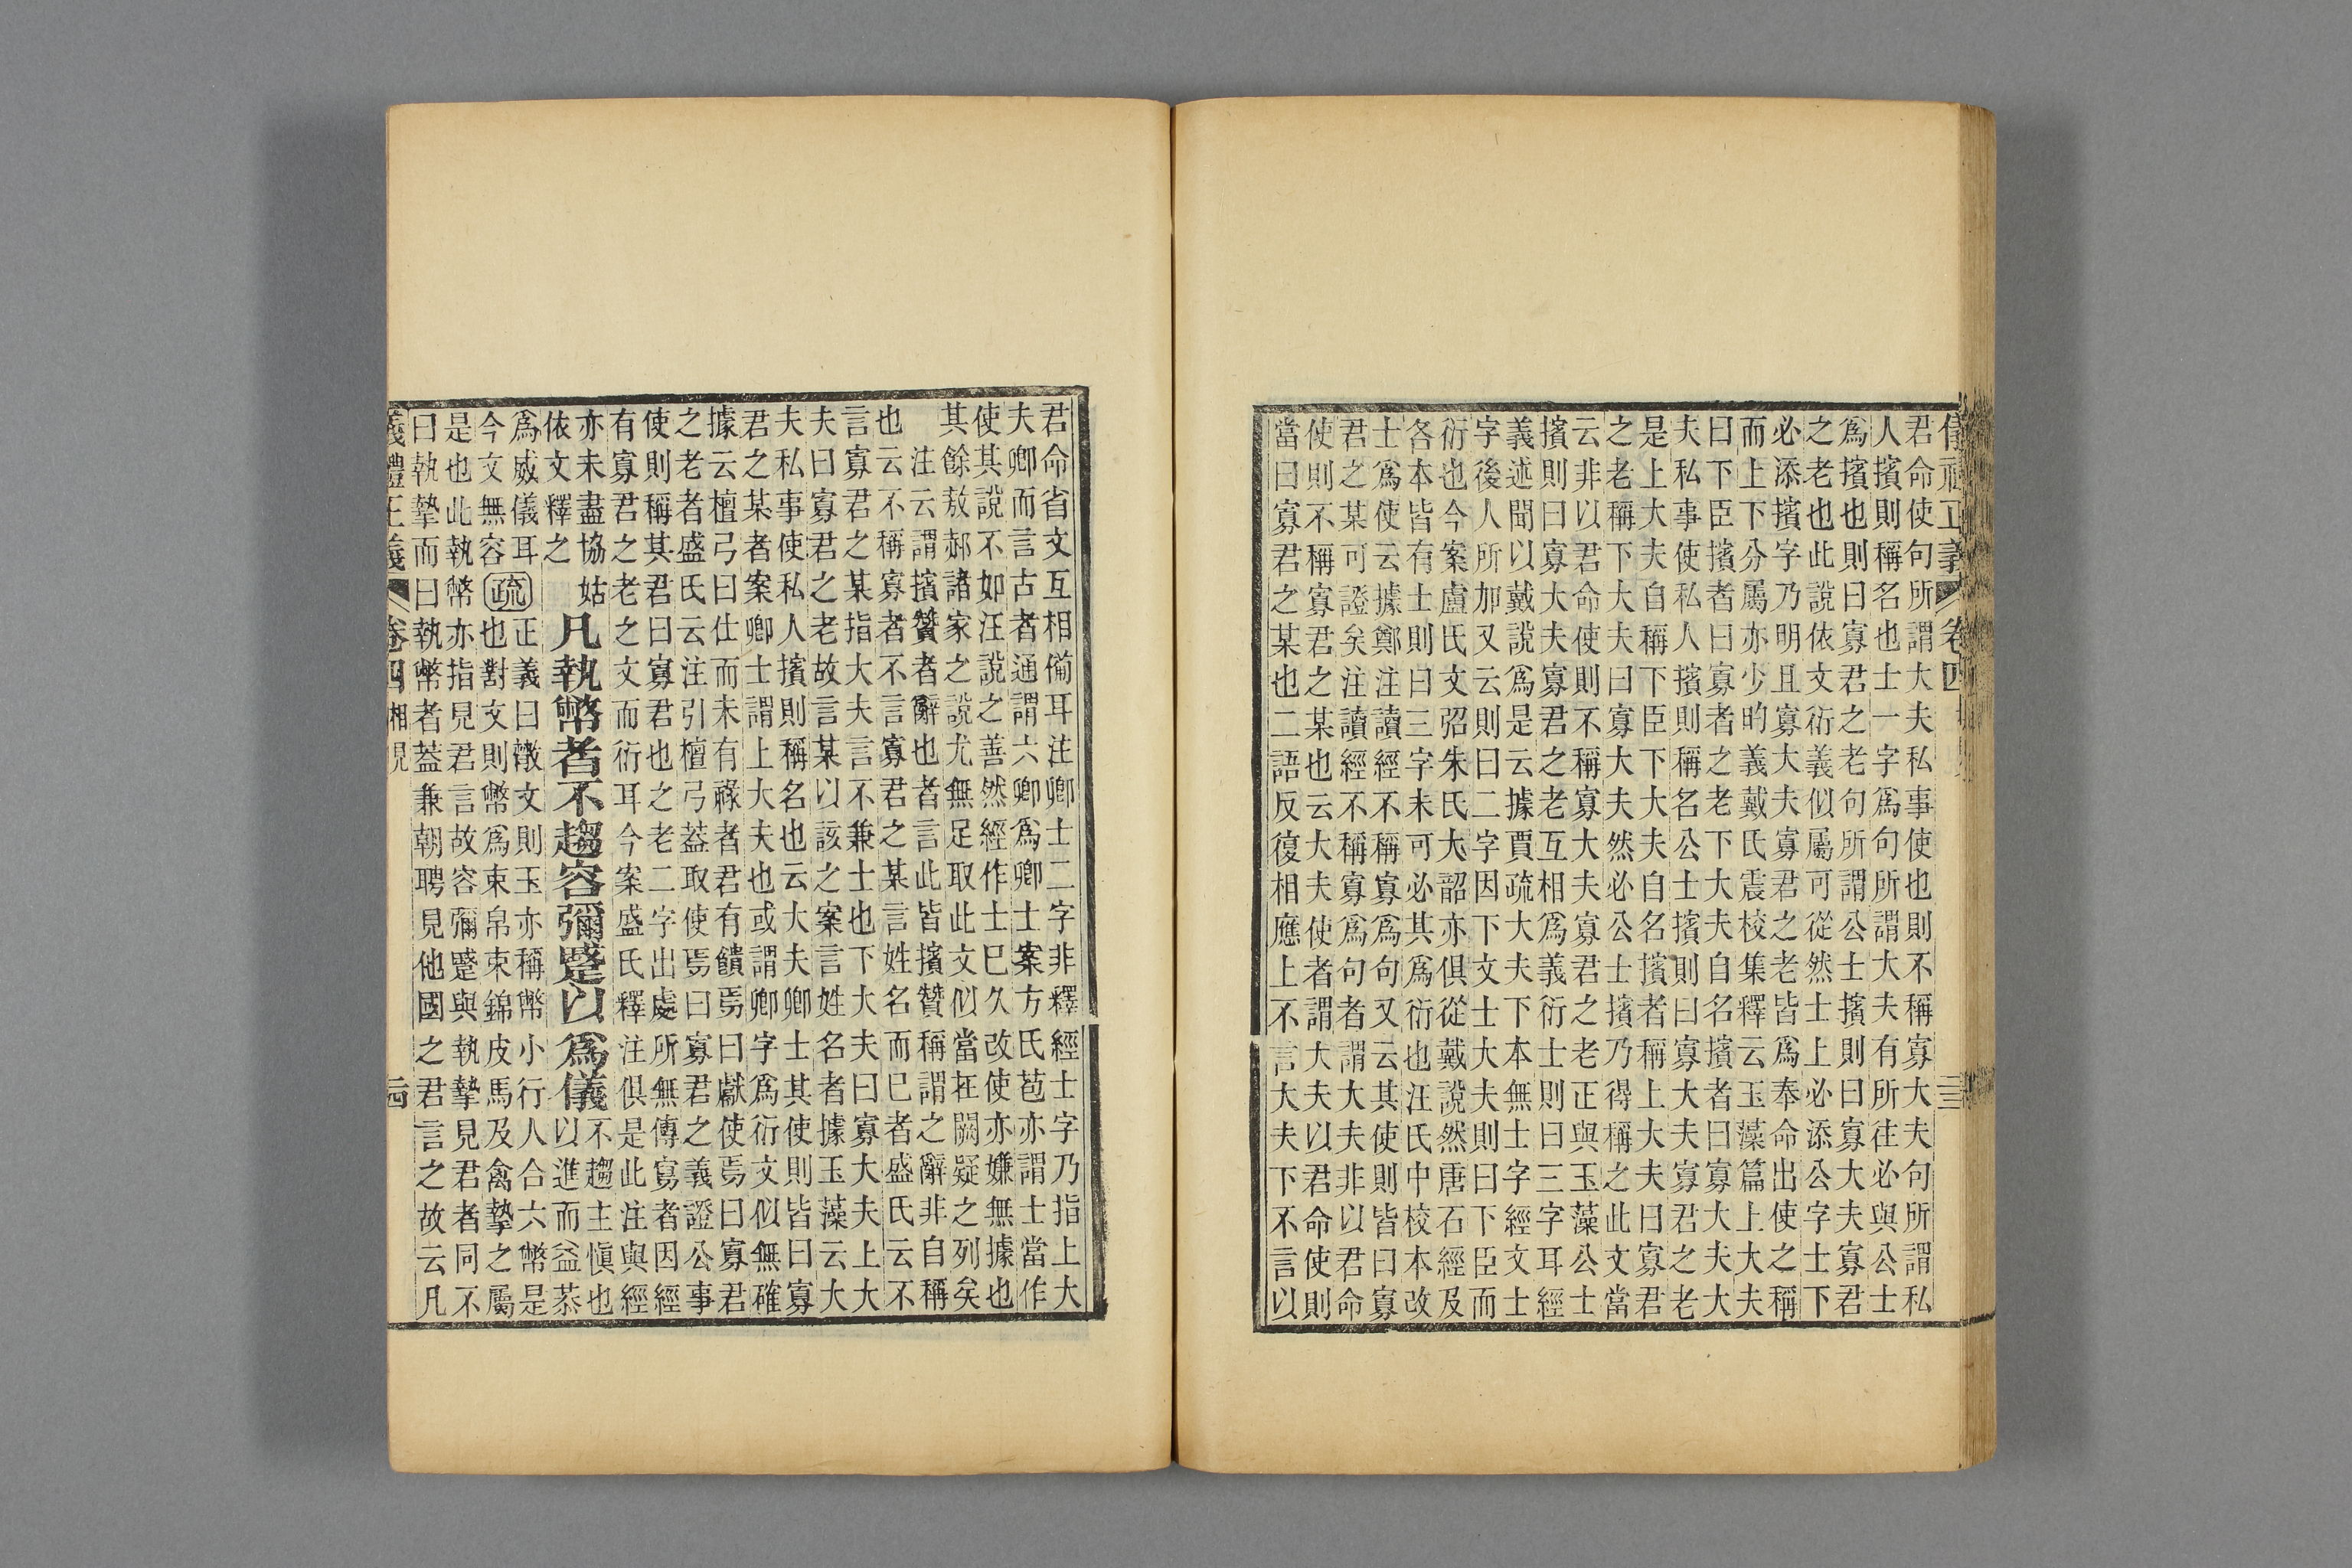 儀禮正義 卷四
君命使句所謂大夫私事使也則不稱寡大夫句所謂私
人擯則稱名也士一字爲句所謂大夫有所往必與公士
爲擯也則曰寡君之老句所謂公士擯則曰寡大夫寡君
之老也此說依文衍義似屬可從然士上必添公字士下
必添擯字乃明且寡大夫寡君之老皆爲奉命出使之稱
而上下分屬亦少旳義戴氏震校集釋云玉藻篇上大夫
曰下臣擯者曰寡者之老下大夫自名擯者曰寡大夫大
夫私事使私人擯則稱名公士擯則曰寡大夫寡君之老
是上大夫自稱下臣下大夫自名擯者稱上大夫曰寡君
之老稱下大夫曰寡大夫然必公士擯乃得稱之此文當
云非以君命使則不稱寡大夫寡君之老正與玉藻公士
擯則曰寡大夫寡君之老互相爲義衍士則曰三字耳經
義述聞以戴說爲是云據賈疏大夫下本無士字經文士
字後人所加又云則曰二字因下文士大夫則曰下臣而
衍也今案盧氏文弨朱氏大韶亦俱從戴說然唐石經及
各本皆有士則曰三字未可必其爲衍也注氏中校本改
士爲使云據鄭注讀經不稱寡爲句又云其使則皆曰寡
君之某可證矣注讀經不稱寡爲句者謂大夫非以君命
使則不稱寡君之某也云大夫使者謂大夫以君命使則
當曰寡君之某也二語反復相應上不言大夫下不言以
君命省文互相僃耳注卿士二字非釋經士字乃指上大
夫卿而言古者通謂六卿爲卿士案方氏苞亦謂士當作
使其說不如汪說之善然經作士已久改使亦嫌無據也
其餘敖郝諸家之說尤無足取此文似當在闕疑之列矣
注云謂擯贊者辭也者言此皆擯贊稱謂之辭非自稱
也云不稱寡者不言寡君之某言姓名而已者盛氏云不
言寡君之某指大夫言不兼士也下大夫曰寡大夫上大
夫曰寡君之老故言某以該之案言姓名者據玉藻云大
夫私事使私人擯則稱名也云大夫卿士其使則皆曰寡
君之某者案卿士謂上大夫也或謂卿字爲衍文似無確
據云檀弓曰仕而未有祿者君有饋焉曰獻使焉曰寡君
之老者盛氏云注引檀弓葢取使焉曰寡君之義證公事
使則稱其君曰寡君也之老二字出處所無傳寫者因經
有寡君之老之文而衍耳今案盛氏釋注俱是此注與經
亦未盡協姑
依文釋之
凡執幣者不趨容彌蹙以爲儀
不趨主愼也
以進而益恭
爲威儀耳
今文無容
疏
正義曰㪚文則玉亦稱幣小行人合六幣是
也對文則幣爲束帛束錦皮馬及禽摯之屬
是也此執幣亦指見君言故容彌蹙與執摯見君者同不
曰執摯而曰執幣者葢兼朝聘見他國之君言之故云凡
儀禮正義 卷四 相見